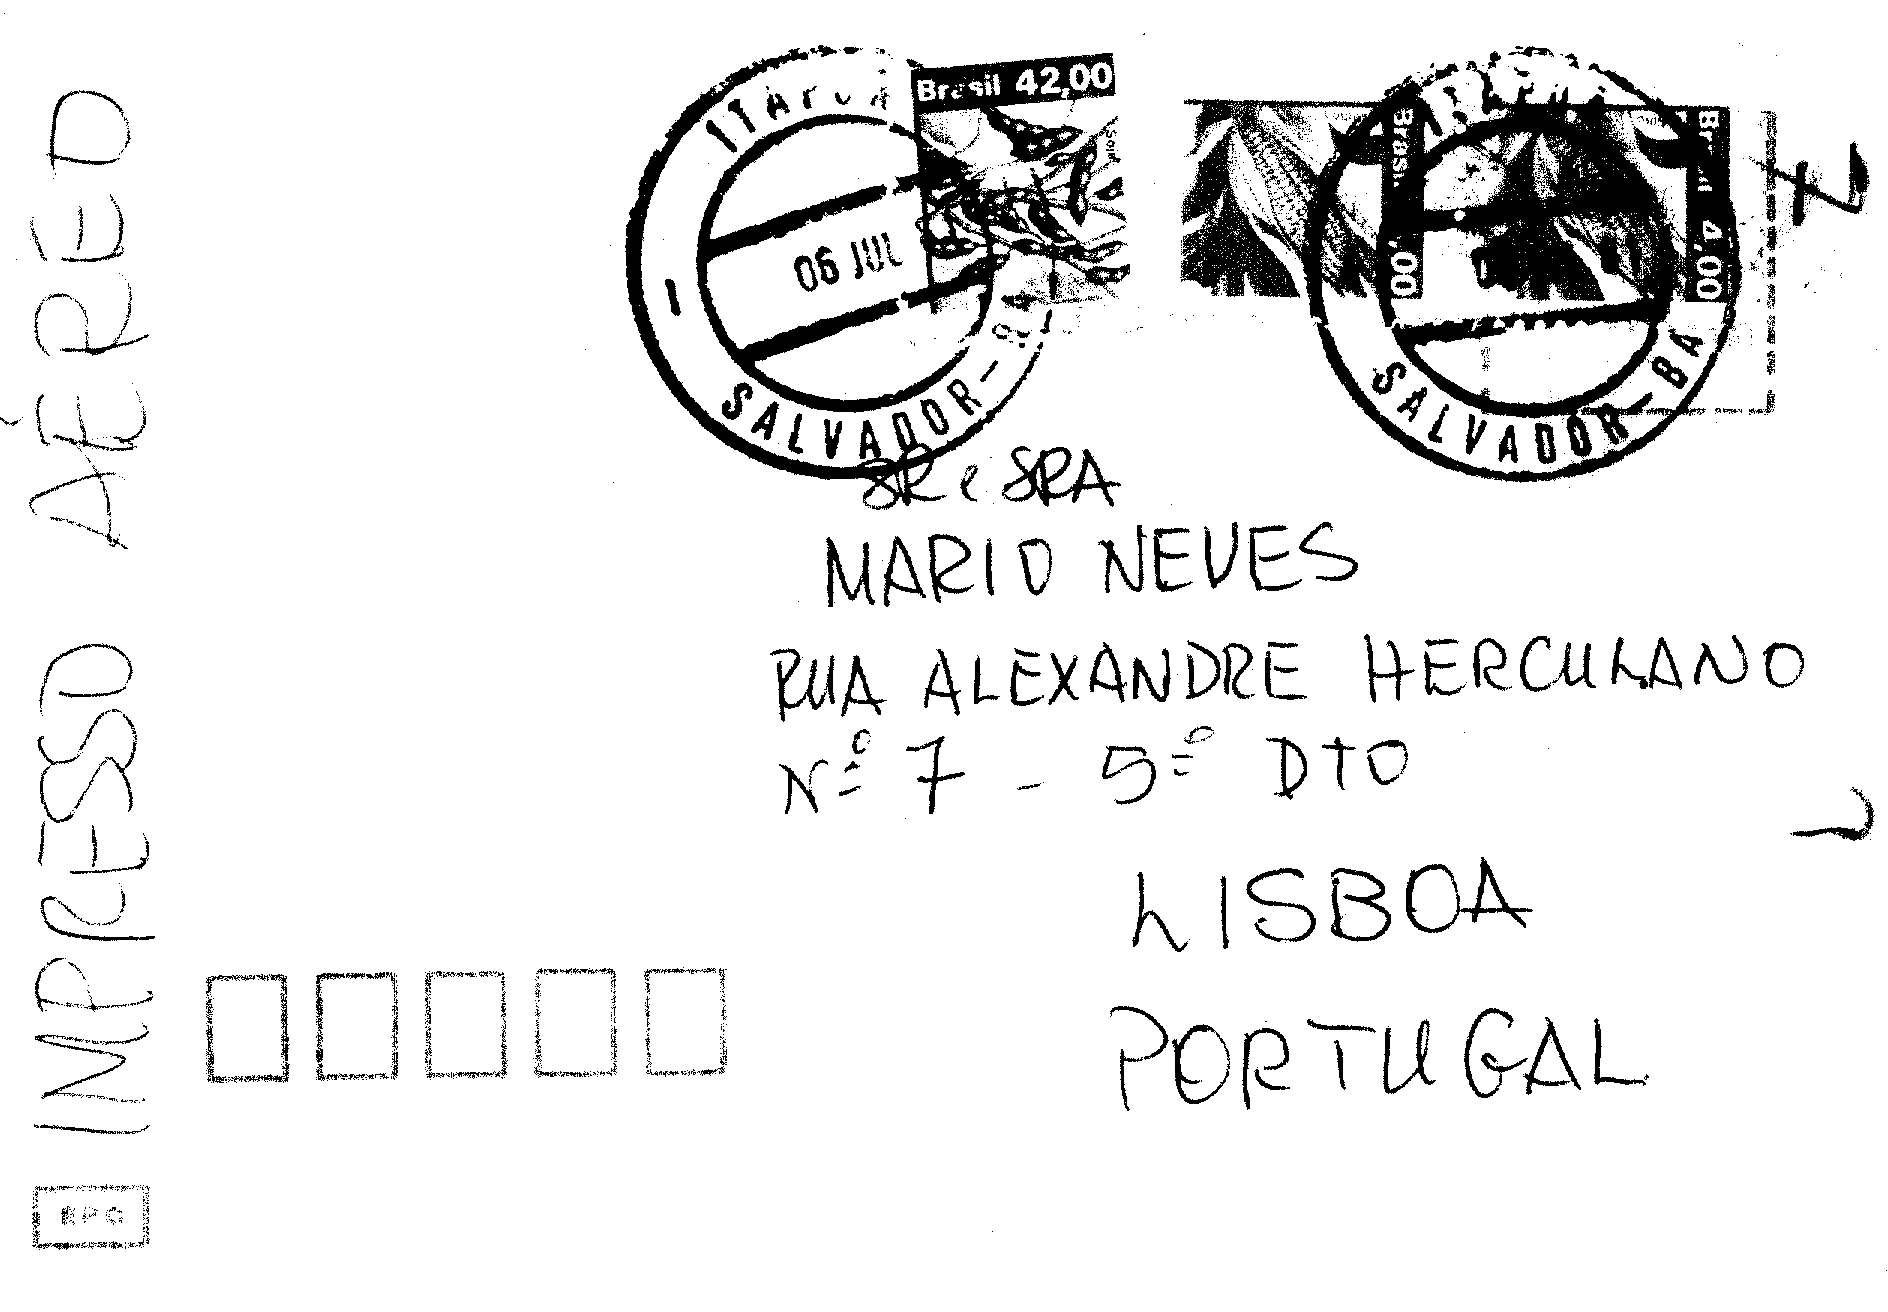 IMPRESSO AÉREO
ITAPUÃ
Brasil 42,00
06 JUL
SALVADOR-BA
Brasil 4,00
SALVADOR-BA
SR e SRA
MARIO NEVES
RUA ALEXANDRE HERCULANO
Nº 7 - 5º DTO
LISBOA
PORTUGAL